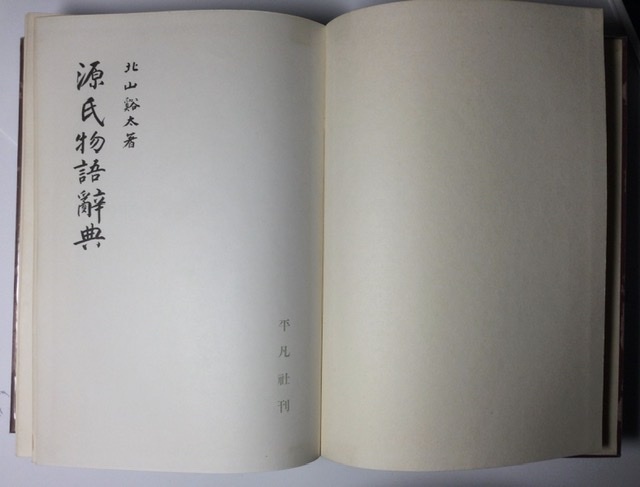 北山谿太著
源氏物語辭典
平凡社刊